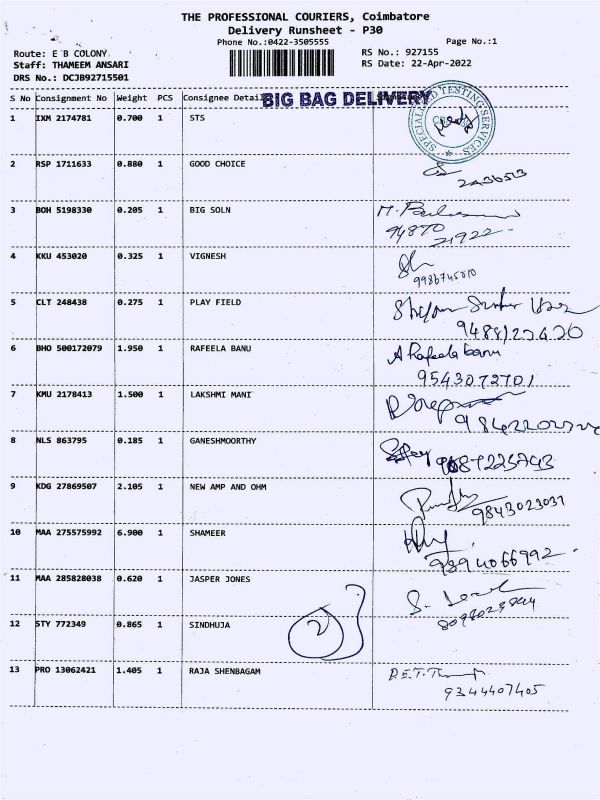 THE PROFESSIONAL COURIERS, Coimbatore
Delivery Runsheet - P30
Phone No.:0422-3505555
Page No.:1
Route: E B COLONY
RS No.: 927155
Staff: THAMEEM ANSARI
RS Date: 22-Apr-2022
DRS No.: DCJB92715501
S No Consignment No Weight PCS Consignee Detail
BIG BAG DELIVERY
TESTING SERVICES
1 IXM 2174781 0.700 1 STS
2 RSP 1711633 0.880 1 GOOD CHOICE
3 BOH 5198330 0.205 1 BIG SOLN
94870
21922
4 KKU 453020 0.325 1 VIGNESH
5 CLT 248438 0.275 1 PLAY FIELD
6 BHO 500172079 1.950 1 RAFEELA BANU A Rafeela banu
9543072701
7 KMU 2178413 1.500 1 LAKSHMI MANI
8 NLS 863795 0.185 1 GANESHMOORTHY
9 KDG 27869507 2.105 1 NEW AMP AND OHM
9843023031
10 MAA 275575992 6.900 1 SHAMEER
9394066992
11 MAA 285828038 0.620 1 JASPER JONES
12 STY 772349 0.865 1 SINDHUJA
13 PRO 13062421 1.405 1 RAJA SHENBAGAM
9344407405